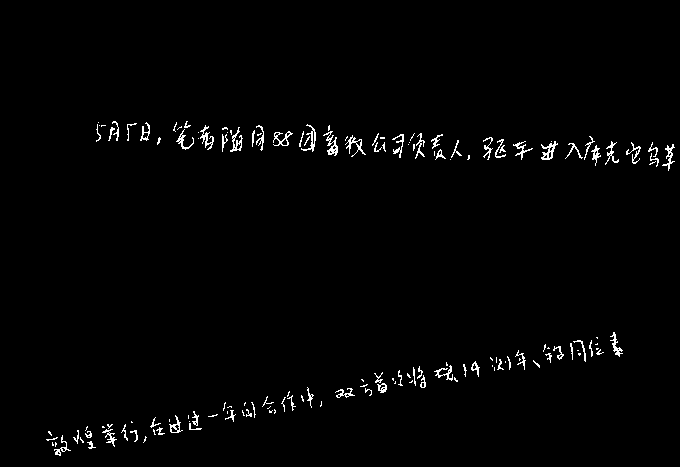 5月5日，笔者随同88团畜牧公司负责人，驱车进入库克它乌草
敦煌举行，在过过一年的合作中，双方首次将碳14测年、铅同位素